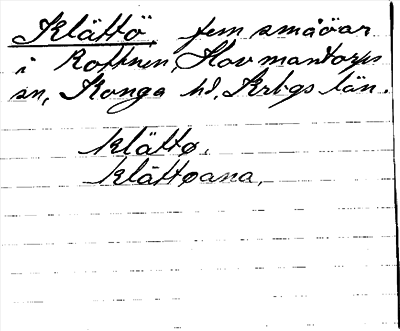 Klättö fem småöar
i Rottnen, Hovmantorps
sn, Konga hd, Krbgs län.
klättø,
klättøana,